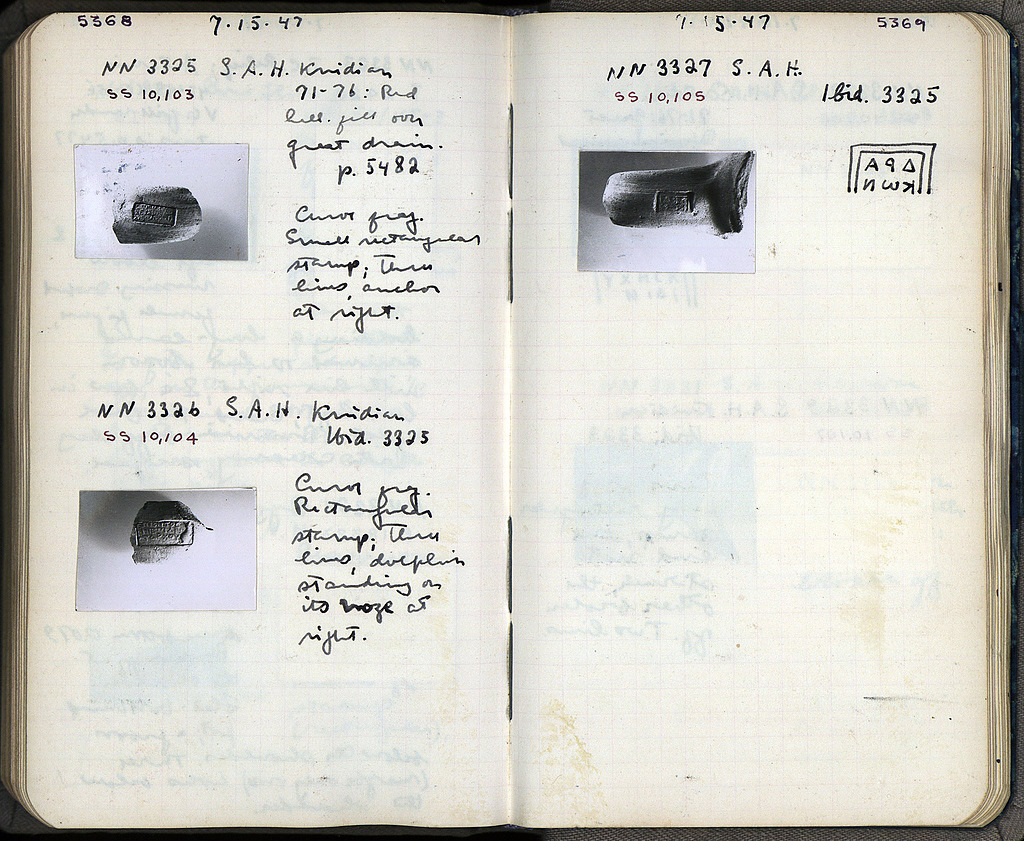 5368
7·15·47
NN 3325 S.A.H. Knidian
SS 10,103
71-76: Red
hell. fill over
great drain.
p. 5482
Curve frag.
Small rectangular
stamp; three
lines, anchor
at right.
NN 3326 S.A.H. Knidian
SS 10,104
Ibid. 3325
Curve frag.
Rectangular
stamp; three
lines, dolphin
standing on
its noze at
right.
7·15·47
5369
NN 3327 S.A.H.
SS 10,105
Ibid. 3325
ΑΡΔ
ΝωΚ